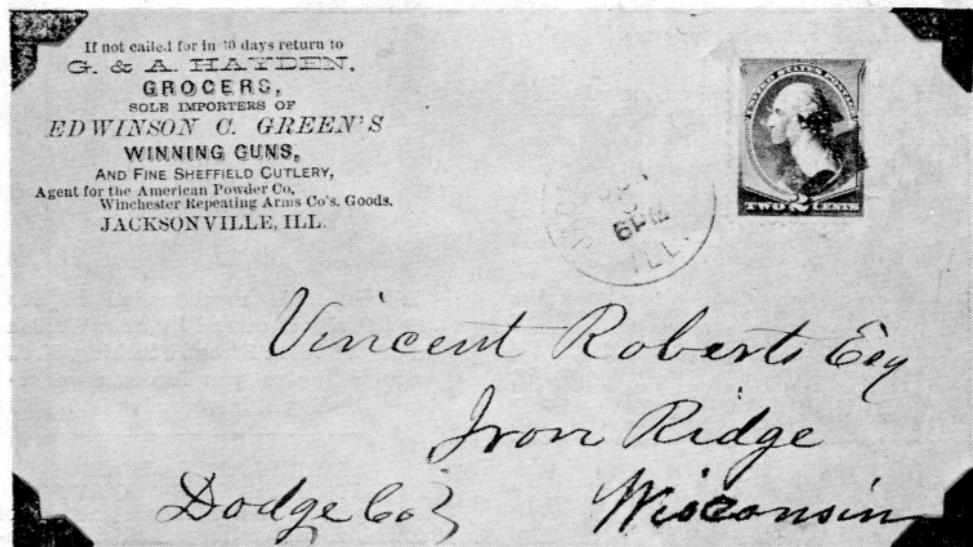 If not called for in 10 days return to
G. & A. HAYDEN,
GROCERS,
SOLE IMPORTERS OF
EDWINSON C. GREEN'S
WINNING GUNS,
AND FINE SHEFFIELD CUTLERY,
Agent for the American Powder Co,
Winchester Repeating Arms Co's. Goods.
JACKSONVILLE, ILL.
UNITED STATES POSTAGE
TWO 2 CENTS
6 PM
ILL.
Vincent Roberts Esq
Iron Ridge
Dodge Co Wisconsin